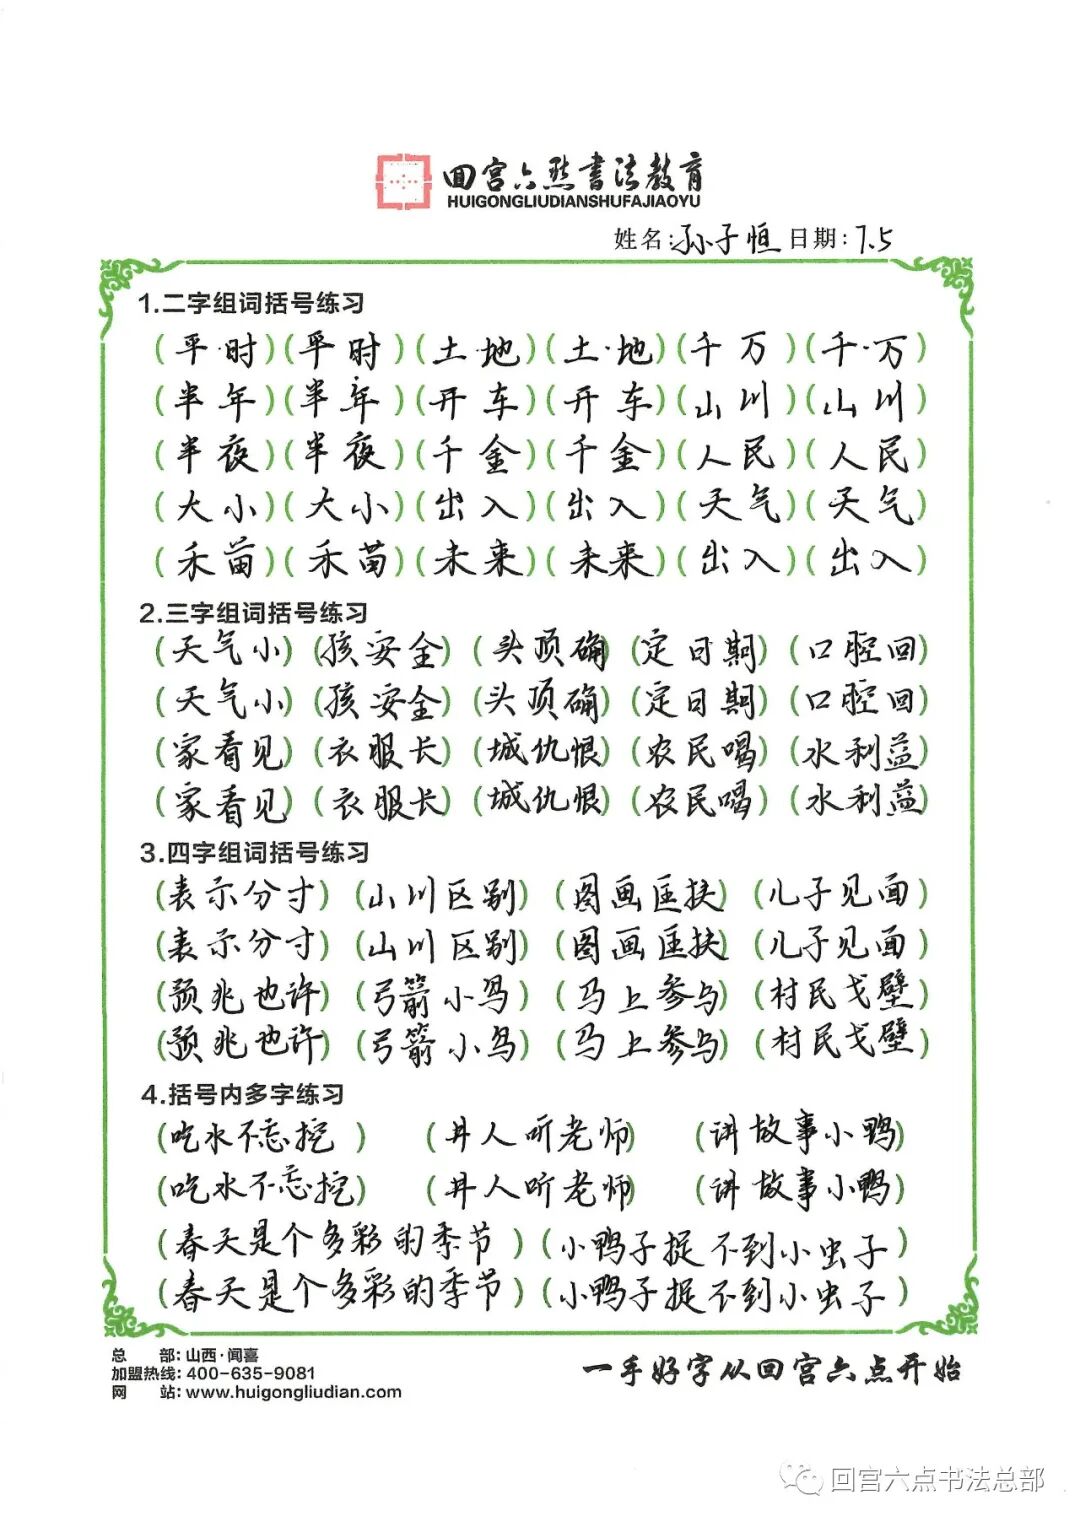 回宫六点书法教育
HUIGONGLIUDIANSHUFAJIAOYU
姓名:孙子恒 日期:7.5
1.二字组词括号练习
(平时)(平时)(土地)(土地)(千万)(千万)
(半年)(半年)(开车)(开车)(山川)(山川)
(半夜)(半夜)(千金)(千金)(人民)(人民)
(大小)(大小)(出入)(出入)(天气)(天气)
(禾苗)(禾苗)(未来)(未来)(出入)(出入)
2.三字组词括号练习
(天气小)(孩安全)(头顶确)(定日期)(口腔回)
(天气小)(孩安全)(头顶确)(定日期)(口腔回)
(家看见)(衣服长)(城仇恨)(农民喝)(水利益)
(家看见)(衣服长)(城仇恨)(农民喝)(水利益)
3.四字组词括号练习
(表示分寸)(山川区别)(图画匡扶)(儿子见面)
(表示分寸)(山川区别)(图画匡扶)(儿子见面)
(预兆也许)(弓箭小鸟)(马上参与)(村民戈壁)
(预兆也许)(弓箭小鸟)(马上参与)(村民戈壁)
4.括号内多字练习
(吃水不忘挖)(井人听老师)(讲故事小鸭)
(吃水不忘挖)(井人听老师)(讲故事小鸭)
(春天是个多彩的季节)(小鸭子捉不到小虫子)
(春天是个多彩的季节)(小鸭子捉不到小虫子)
总 部:山西·闻喜
加盟热线:400-635-9081
网 站:www.huigongliudian.com
一手好字从回宫六点开始
回宫六点书法总部